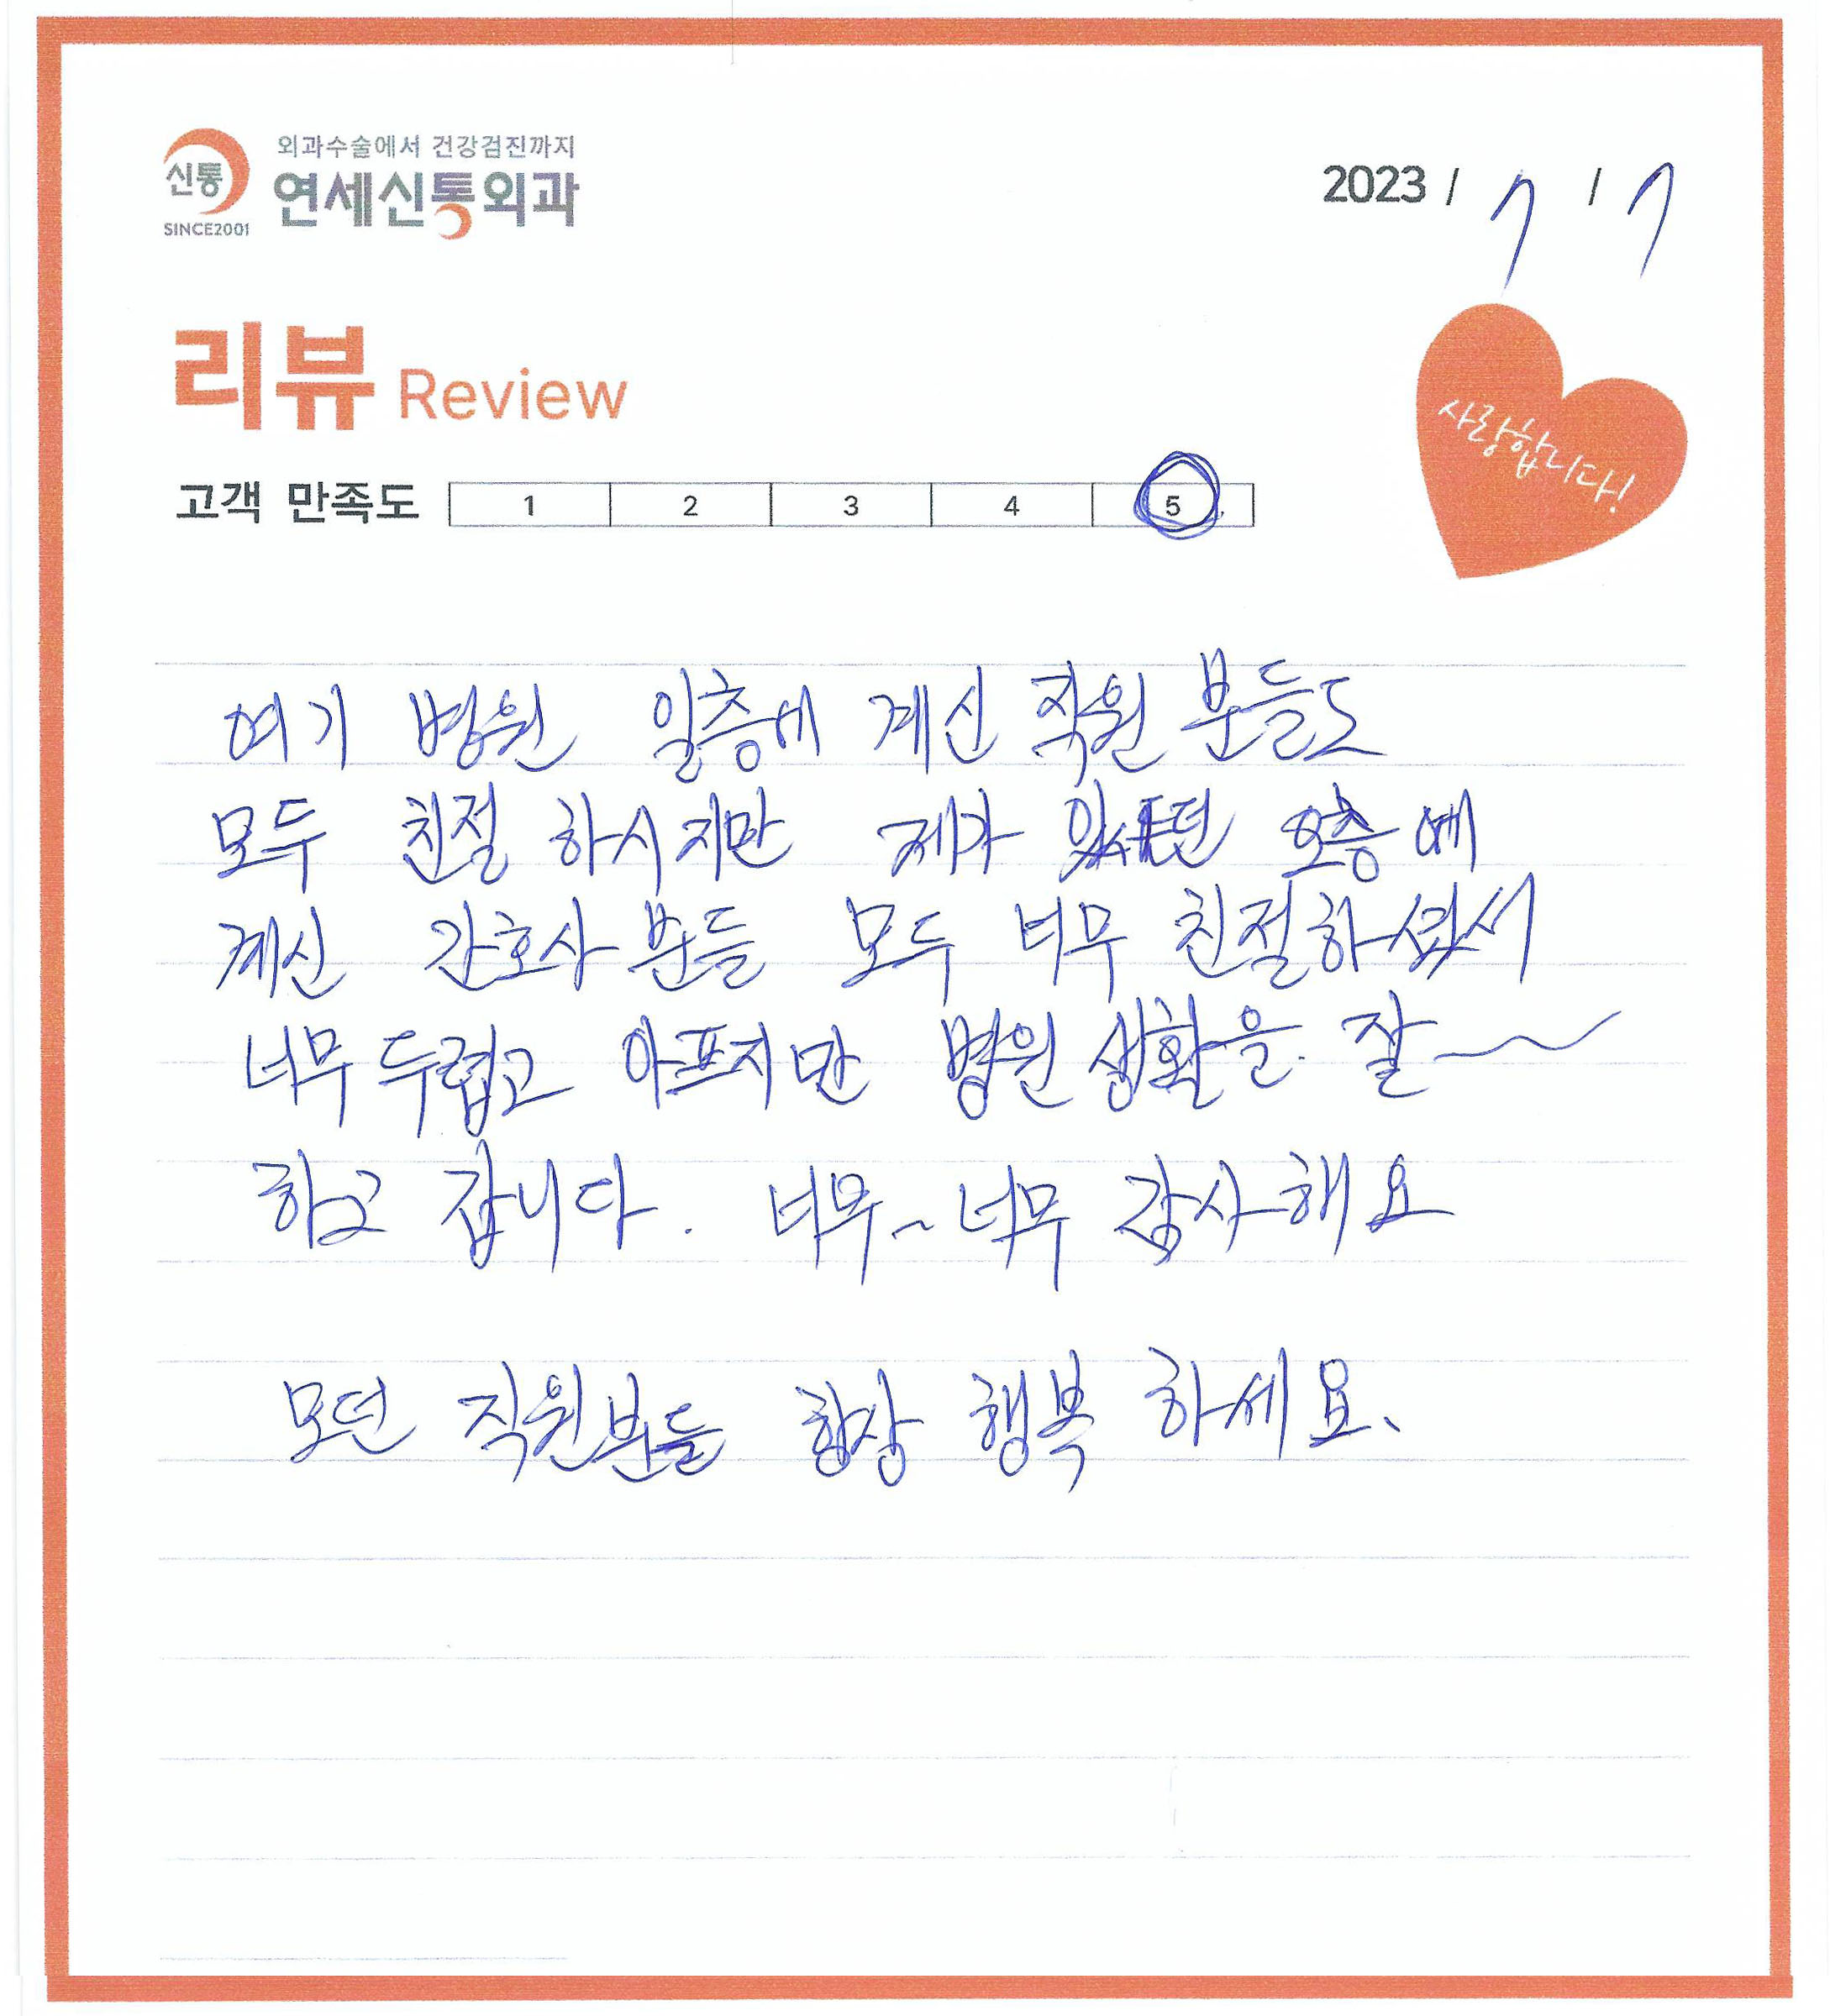 신통
SINCE2001
외과수술에서 건강검진까지
연세신통외과
2023 / 7 / 7
리뷰 Review
사랑합니다!
고객 만족도 1 2 3 4 5
여기 병원 일층에 계신 직원 분들도
모두 친절 하시지만 제가 있던 오층에
계신 간호사 분들 모두 너무 친절하셨서
너무 두렵고 아프지만 병원 생활을 잘~
하고 갑니다. 너무~너무 감사해요
모던 직원분들 항상 행복 하세요.